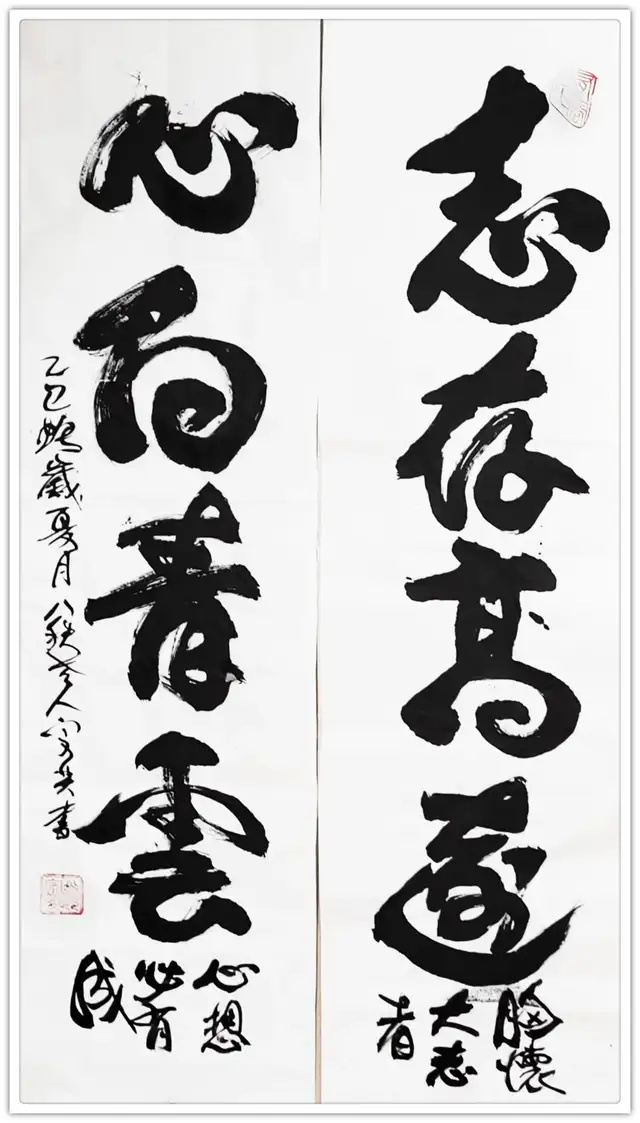 志存高遠
胸懷
大志
者
心向青雲
心想
必有
成
乙巳蛇歲夏月八秩老人書